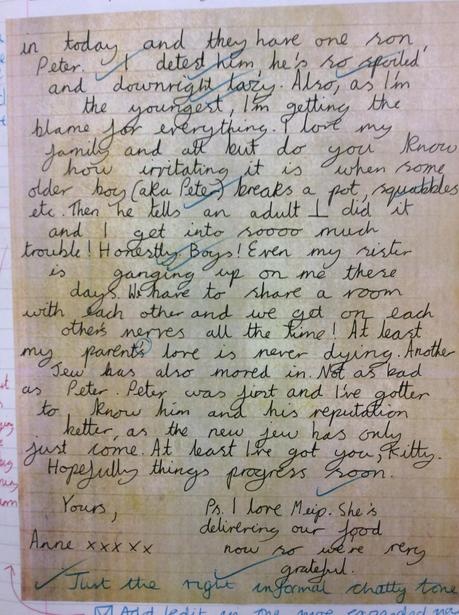 in today and they have one son,
Peter. I detest him, he's so spoiled
and downright lazy. Also, as I'm
the youngest, I'm getting the
blame for everything. I love my
family and all but do you know
how irritating it is when some
older boy (aka Peter) breaks a pot, squabbles
etc. Then he tells an adult I did it
and I get into soooo much
trouble! Honestly, Boys! Even my sister
is ganging up on me these
days. We have to share a room
with each other and we get on each
others nerves all the time! At least
my parents love is never dying. Another
Jew has also moved in. Not as bad
as Peter. Peter was first and I've gotten
to know him and his reputation
better, as the new jew has only
just come. At least I've got you, Kitty.
Hopefully things progress soon.
Yours,
Anne xxxxx
Ps. I love Meip. She's
delivering our food
now so we're very
grateful.
Just the right informal chatty tone
Add/edit in one more expanded